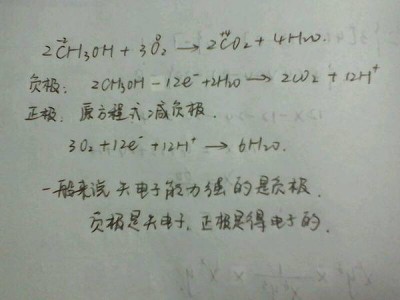 2C⁻²H3OH + 3O⁰2 → 2C⁺⁴O2 + 4H2O.
负极: 2CH3OH - 12e⁻ + 2H2O → 2CO2 + 12H⁺
正极: 原方程式减负极.
3O2 + 12e⁻ + 12H⁺ → 6H2O.
一般来说失电子能力强的是负极.
负极是失电子,正极是得电子的.